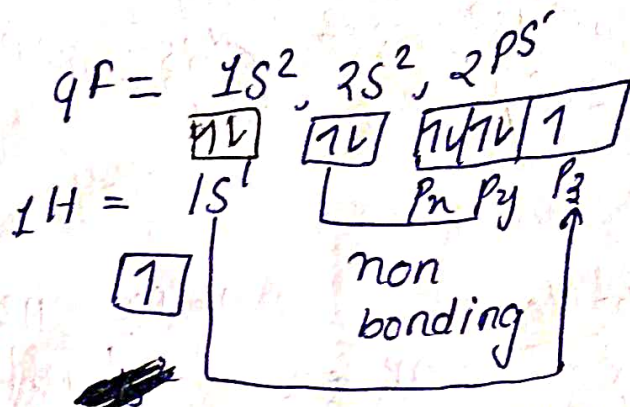 9F = 1S², 2S², 2P5
1L 1L 1L 1L 1
1H = 1S¹ Px Py Pz
1 non
bonding